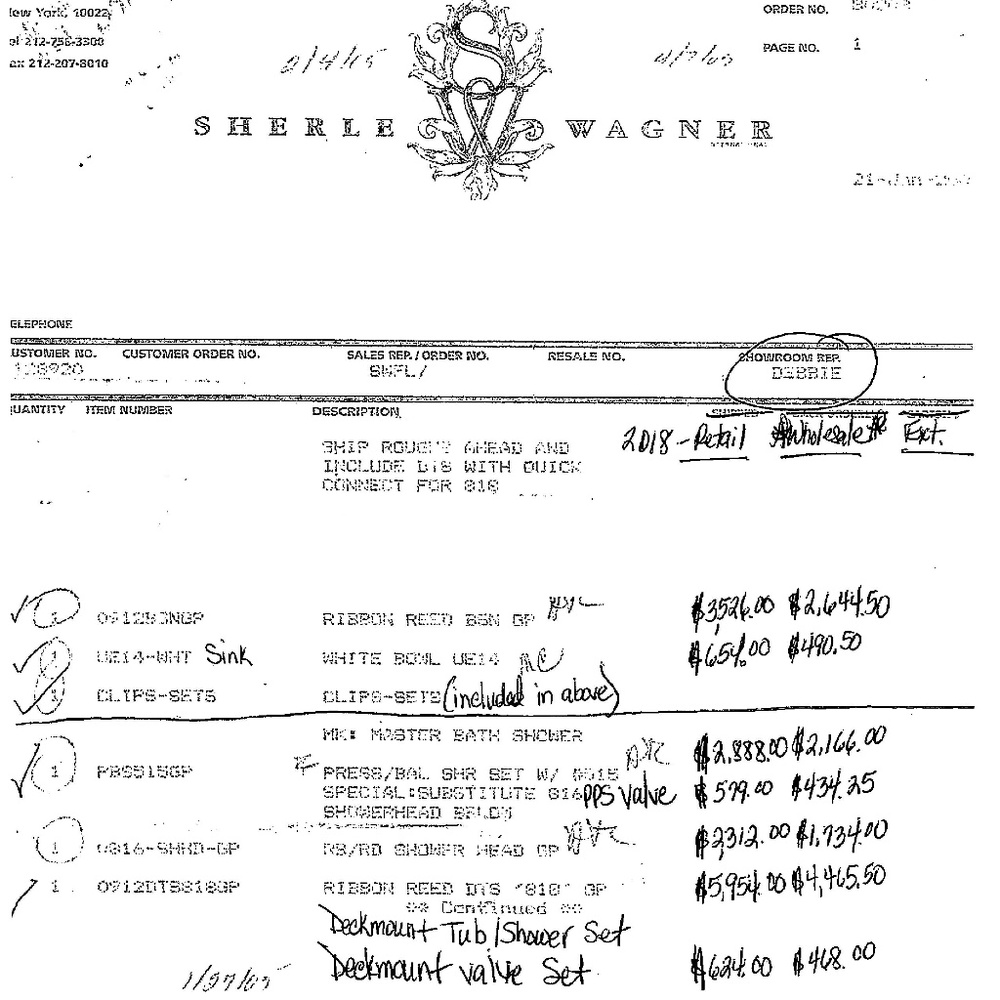 New York, 10022
el 212-758-3300
ax 212-207-8010
ORDER NO.
PAGE NO. 1
2/4/05
SHERLE WAGNER
INTERNATIONAL
21-Jan-
ELEPHONE
USTOMER NO. CUSTOMER ORDER NO. SALES REP. / ORDER NO. RESALE NO. SHOWROOM REP.
128920 SWFL/ DEBBIE
UANTITY ITEM NUMBER DESCRIPTION
2018 - Retail Wholesale Ext.
SHIP ROUGHT AHEAD AND
INCLUDE DTS WITH QUICK
CONNECT FOR 818
RIBBON REED BSN GP $3,526.00 $2,644.50
1 UE14-WHT Sink WHITE BOWL UE14 $654.00 $490.50
1 CLIPS-SETS CLIPS-SETS (included in above)
MK: MASTER BATH SHOWER
1 PRESS/BAL SHR SET W/ $2,888.00 $2,166.00
SPECIAL:SUBSTITUTE 816 PPS valve $579.00 $434.25
SHOWERHEAD
1 0816-SHHD-GP RB/RD SHOWER HEAD GP $2,312.00 $1,734.00
1 0912DTS818GP RIBBON REED DTS "818" GP $5,954.00 $4,465.50
** Continued **
Deckmount Tub/Shower Set
Deckmount valve Set $624.00 $468.00
1/27/05